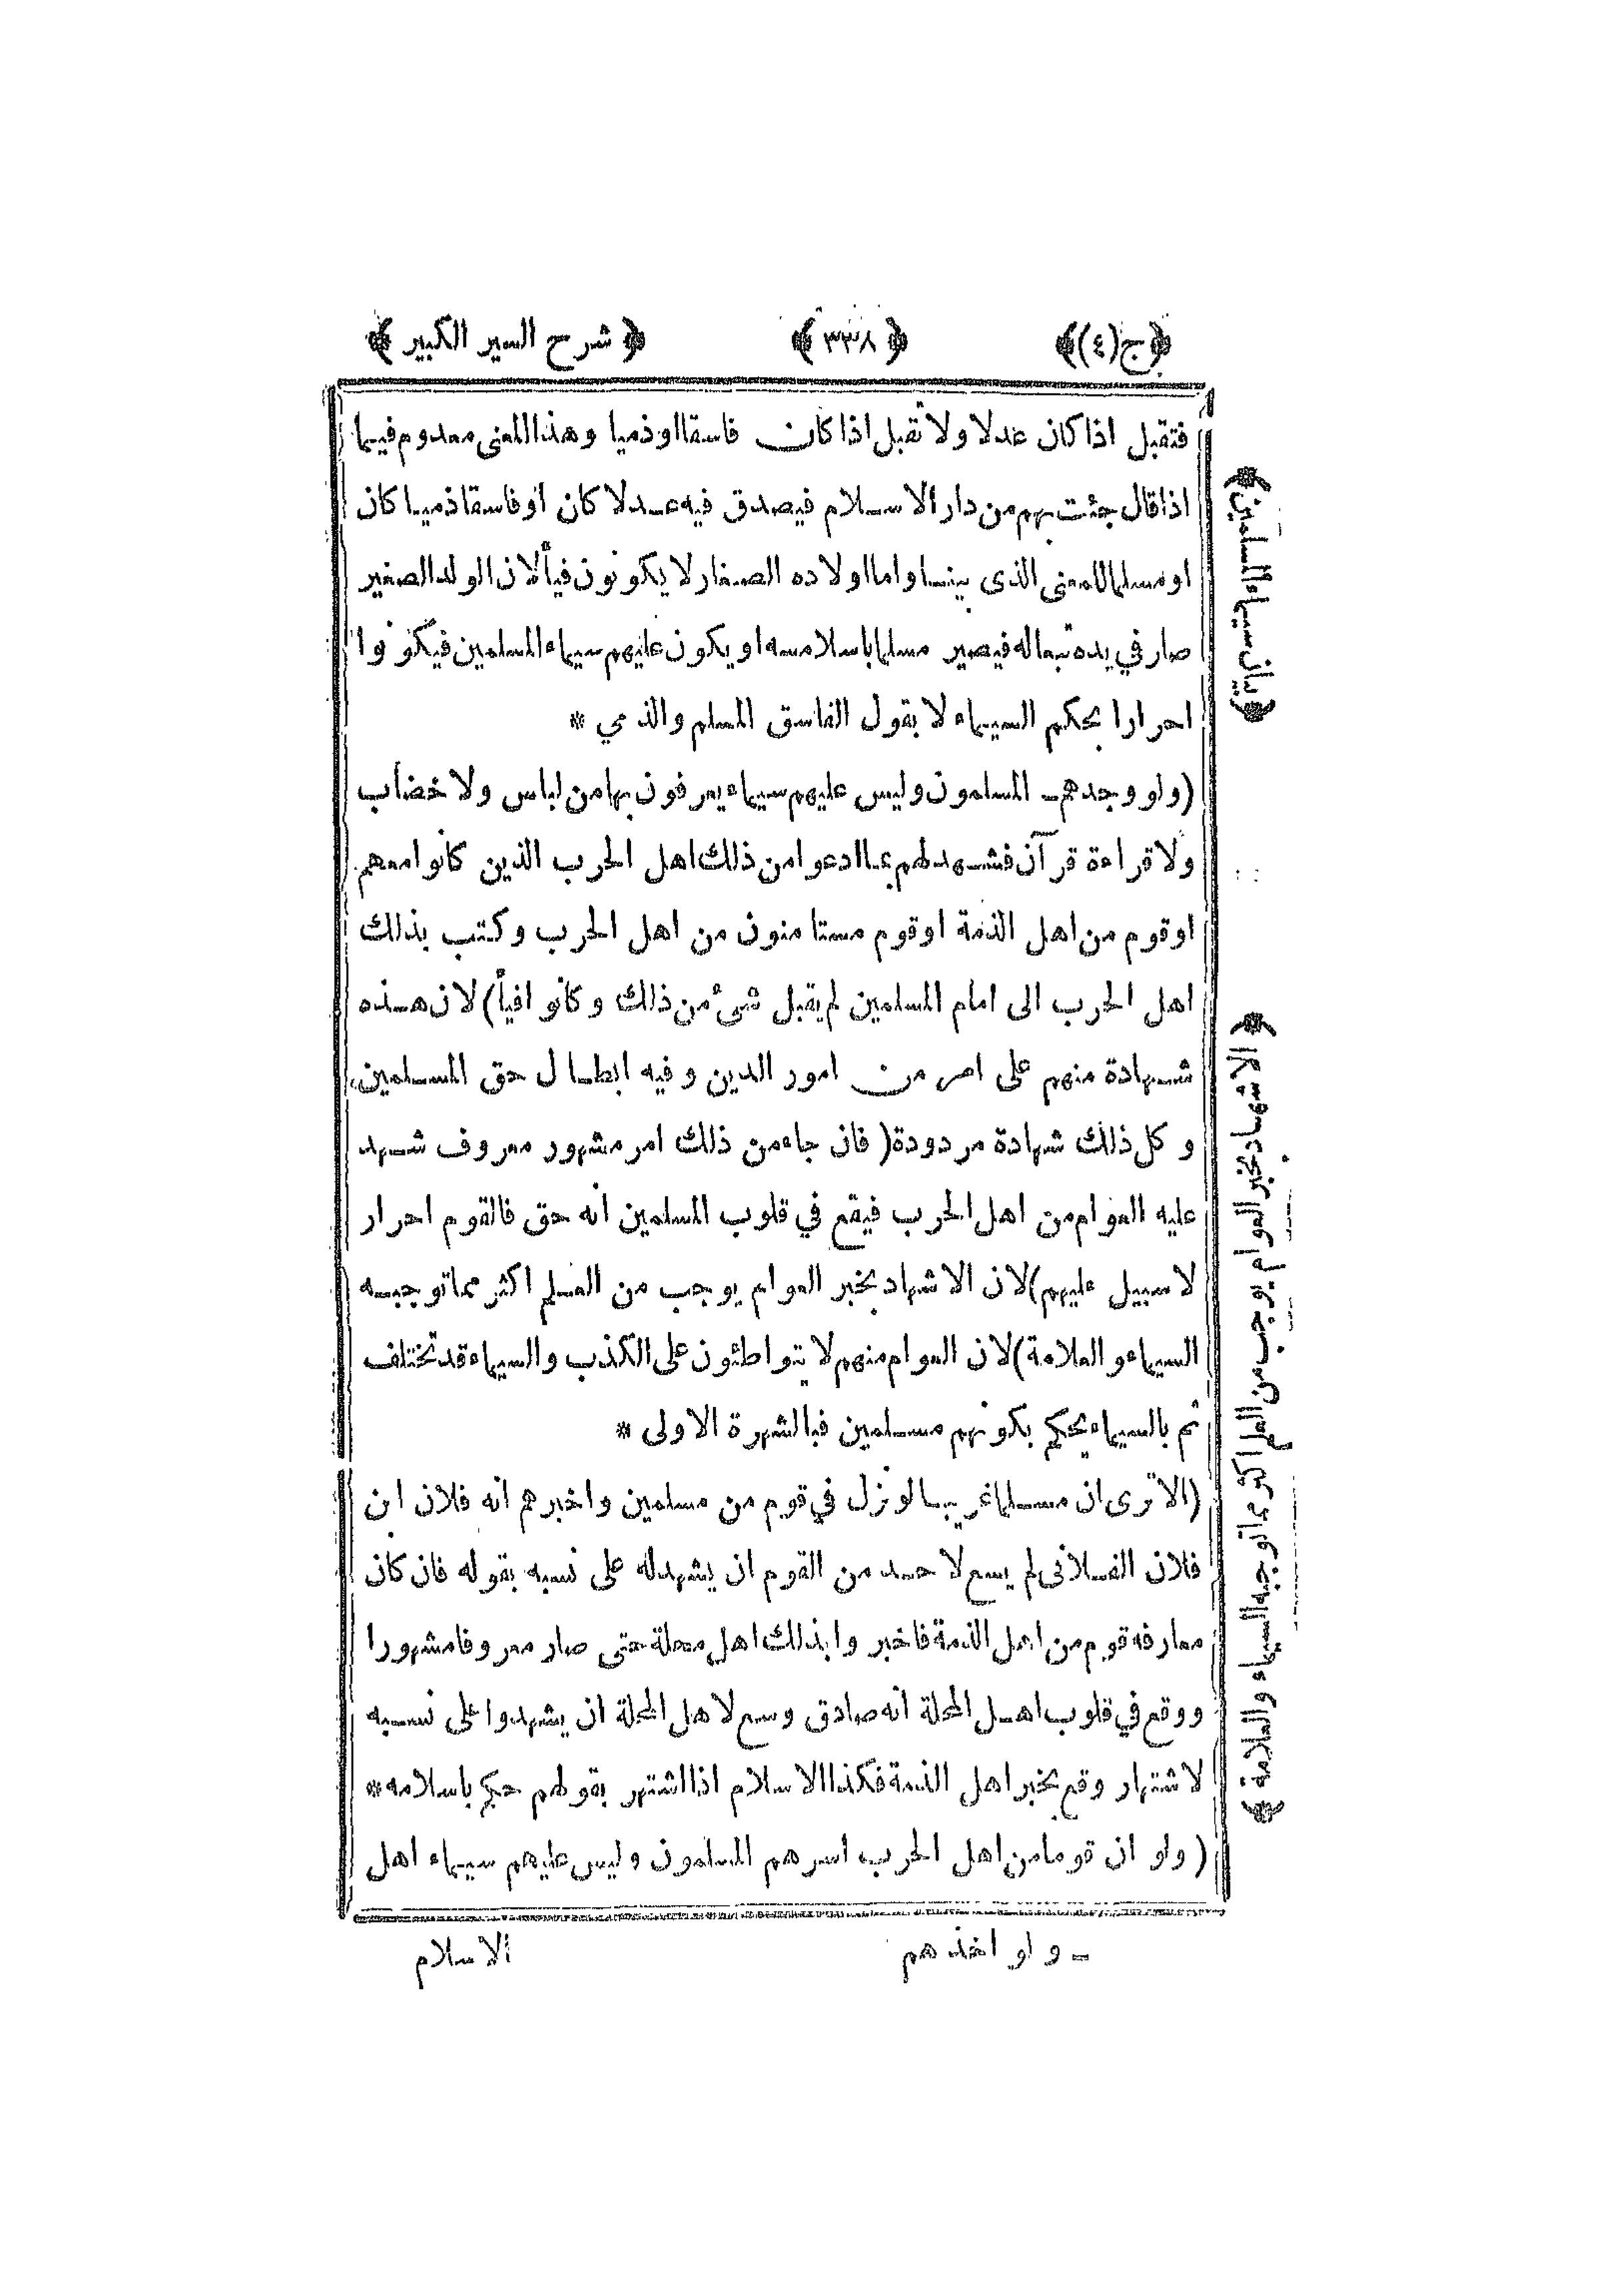 ﴿ج(٤)﴾ ﴿٣٣٨﴾ ﴿شرح السير الكبير﴾
فتقبل اذا كان عدلا ولا تقبل اذا كان فاسقا او ذميا وهذا المعنى معدوم فيما
اذا قال جئت بهم من دار الاسلام فيصدق فيه عدلا كان او فاسقا ذميا كان
او مسلما للمعنى الذى بينا واما اولاده الصغار لا يكونون فيأ لان الولد الصغير
صار في يده تبعا له فيصير مسلما باسلامه او يكون عليهم سيماء المسلمين فيكونوا
احرارا بحكم السيماء لا بقول الفاسق المسلم والذمي *
(ولو وجدهم ـ المسلمون وليس عليهم سيماء يعرفون بها من لباس ولا خضاب
ولا قراءة قرآن فشهد لهم بما ادعوا من ذلك اهل الحرب الذين كانوا معهم
او قوم من اهل الذمة او قوم مستامنون من اهل الحرب وكتب بذلك
اهل الحرب الى امام المسلمين لم يقبل شئ من ذلك وكانوا فيأ) لان هذه
شهادة منهم على امر من امور الدين وفيه ابطال حق المسلمين
وكل ذلك شهادة مردودة (فان جاء من ذلك امر مشهور معروف شهد
عليه العوام من اهل الحرب فيقع في قلوب المسلمين انه حق فالقوم احرار
لا سبيل عليهم) لان الاشهاد بخبر العوام يوجب من العلم اكثر مما توجبه
السيماء والعلامة) لان العوام منهم لا يتواطئون على الكذب والسيماء قد تختلف
ثم بالسيماء يحكم بكونهم مسلمين فبالشهرة الاولى *
(الا ترى ان مسلما غريبا لو نزل في قوم من مسلمين واخبرهم انه فلان ابن
فلان الفلانى لم يسع لاحد من القوم ان يشهد له على نسبه بقوله فان كان
معارفه قوم من اهل الذمة فاخبروا بذلك اهل محلة حتى صار معروفا مشهورا
ووقع في قلوب اهل المحلة انه صادق وسع لاهل المحلة ان يشهدوا على نسبه
لاشتهار وقع بخبر اهل الذمة فكذا الاسلام اذا اشتهر بقولهم حكم باسلامه *
(ولو ان قوما من اهل الحرب اسرهم المسلمون وليس عليهم سيماء اهل
ـ ولو اخذهم
الاسلام
﴿بيان سيماء المسلمين﴾
﴿الاشهاد بخبر العوام يوجب من العلم اكثر مما توجبه السيماء والعلامة﴾